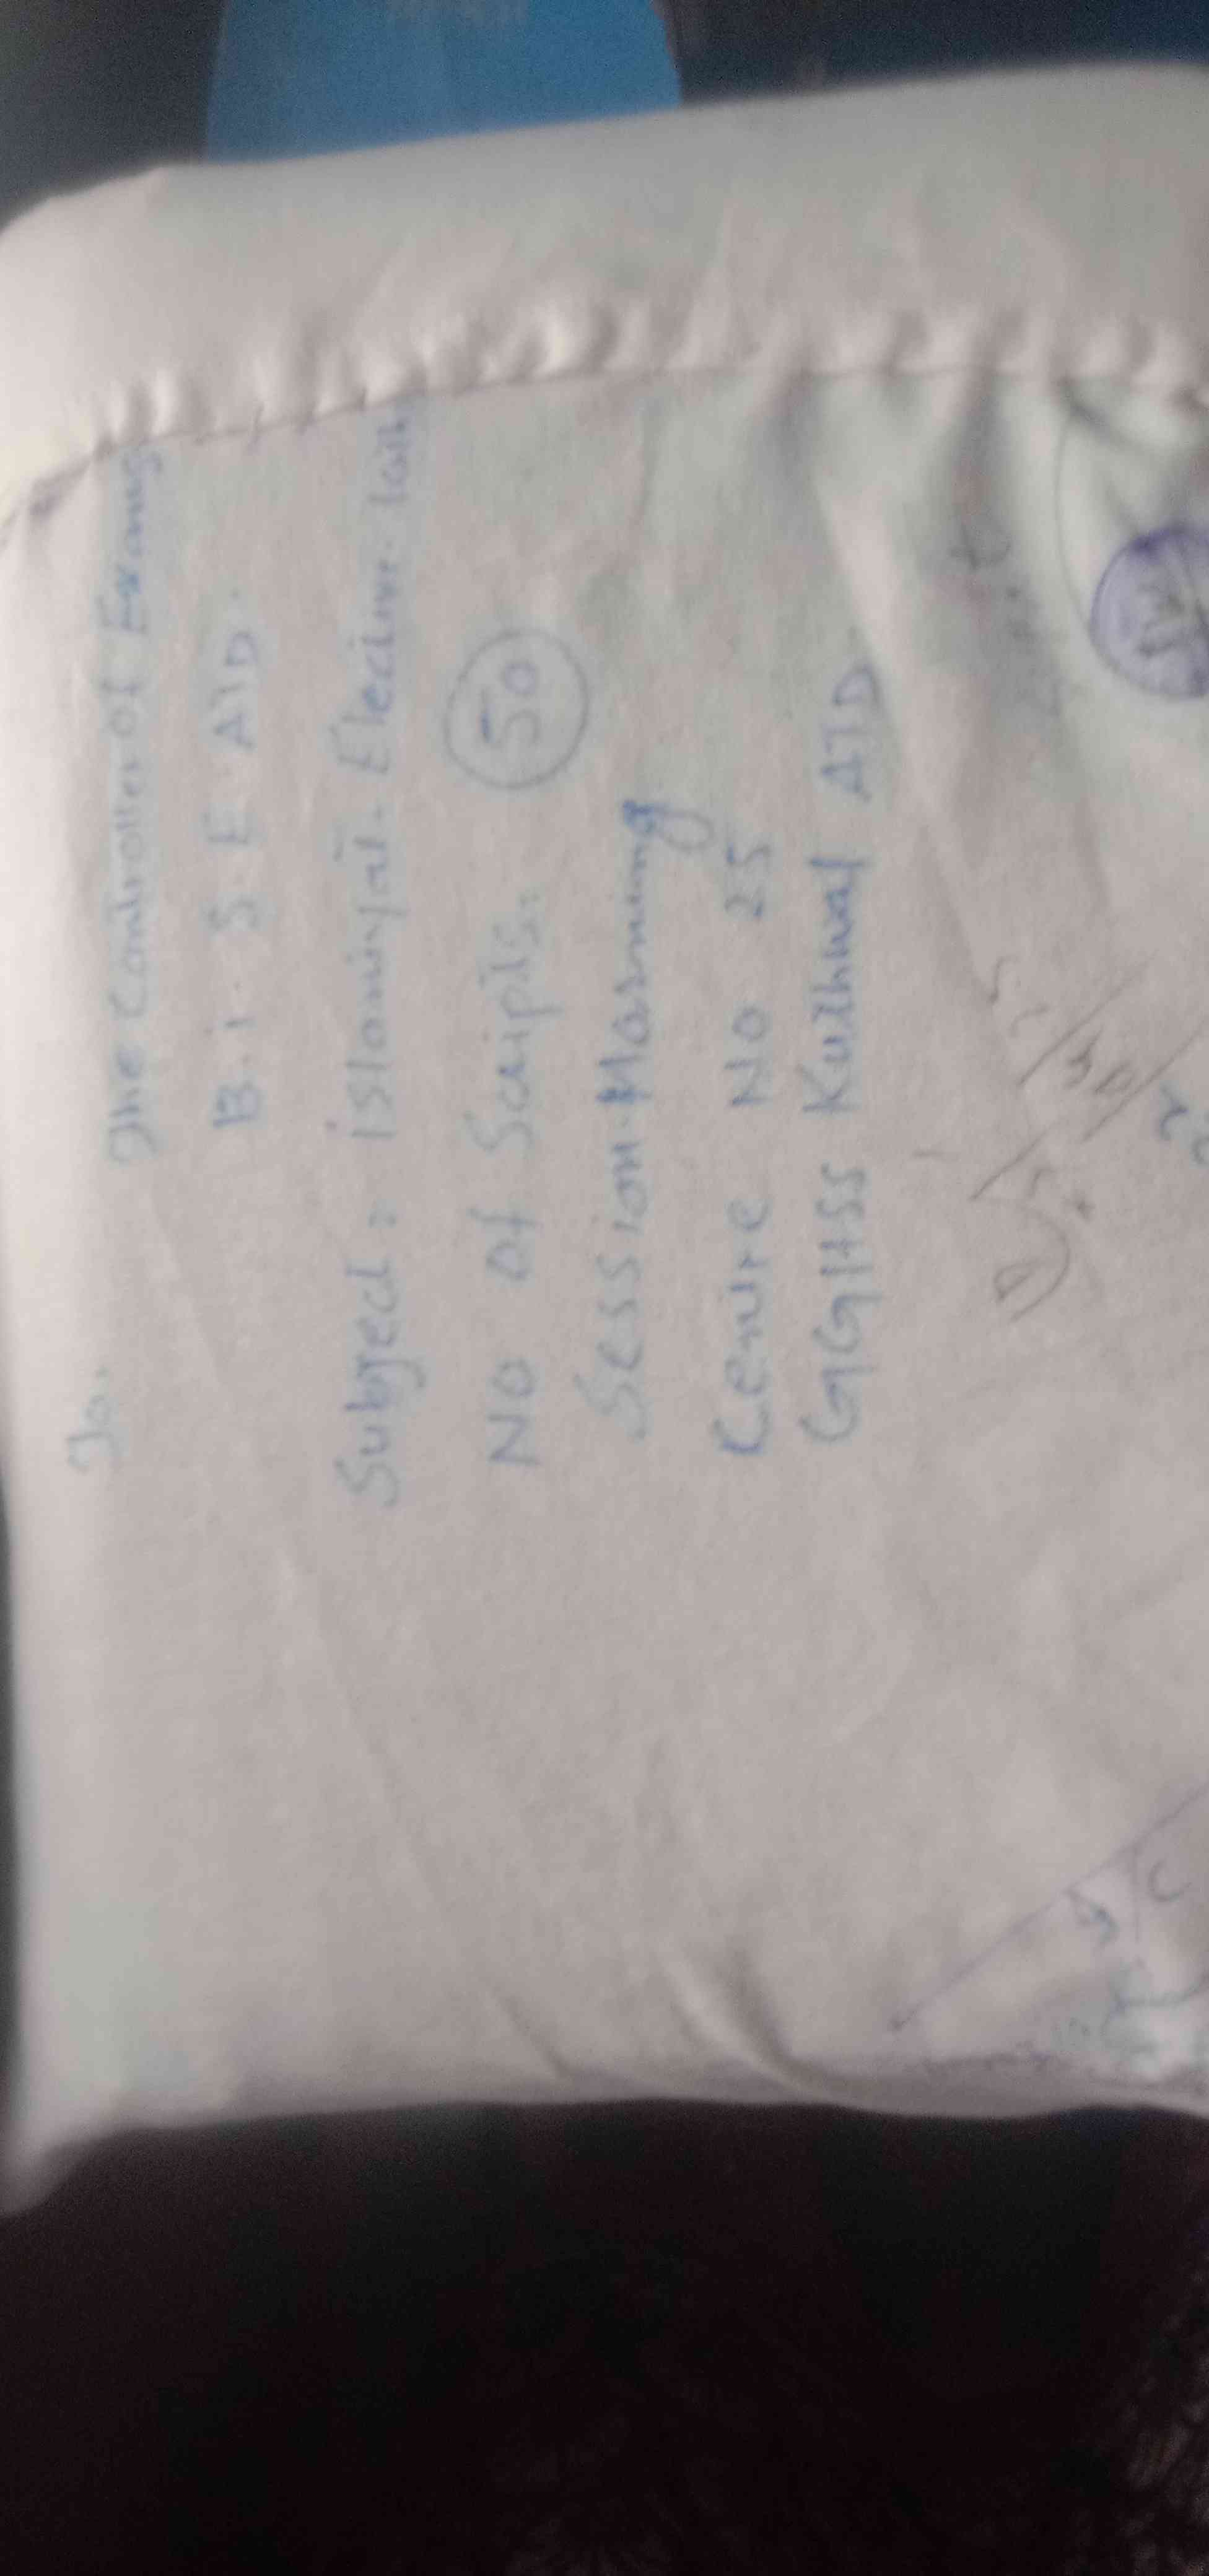 To,
The Controller of Exams
B.I.S.E ATD.
Subject: islamiyat. Elective. 10th
No of Scripts: 50
Session. Morning
Centre No 25
GGHSS Kuthwal ATD